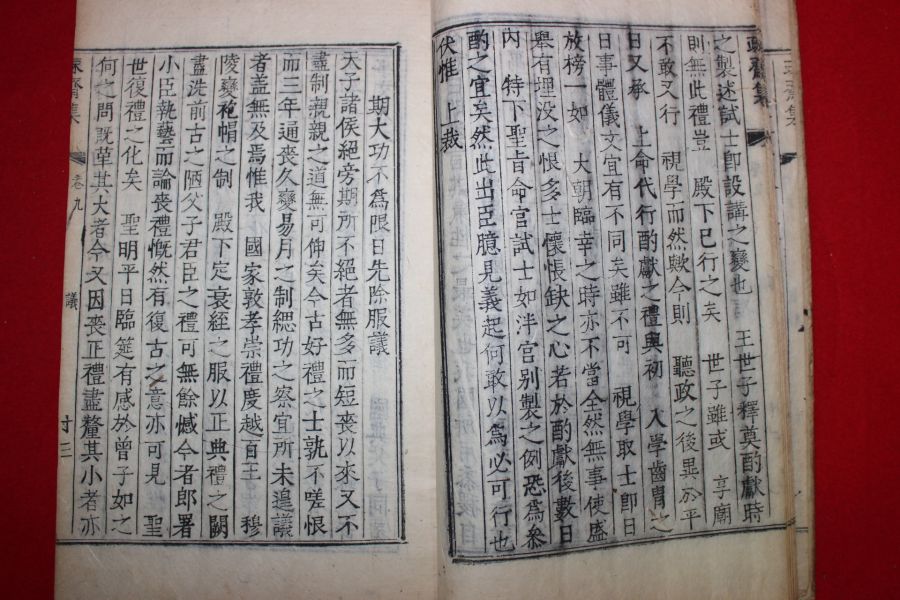 齋集
之製述試士卽設講之變也　王世子釋奠酌獻時
則無此禮豈　殿下已行之矣　世子雖或　享廟
不敢又行　視學而然歟今則　聽政之後異於平
日又承　上命代行酌獻之禮與初　入學齒胄之
日事體儀文宜有不同矣雖不可　視學取士卽日
放榜一如　大朝臨幸之時亦不當全然無事使盛
擧有埋没之恨多士懷悵缺之心若於酌獻後數日
內　特下聖旨命官試士如泮宮别製之例恐爲叅
酌之宜矣然此出臣臆見義起何敢以爲必可行也
伏惟　上裁
期大功不爲限日先除服議
天子諸侯絕旁期所不絕者無多而短喪以來又不
盡制親親之道無可伸矣今古好禮之士孰不嗟恨
而三年通喪久變易月之制緦功之察宜所未遑議
者盖無及焉惟我　國家敦孝崇禮度越百王　穆
陵變袍帽之制　殿下定衰絰之服以正典禮之闕
盡洗前古之陋父子君臣之禮可無餘憾今者郎署
小臣執藝而論喪禮慨然有復古之意亦可見　聖
世復禮之化矣　聖明平日臨筵有感於曾子如之
何之問旣其大者今又因喪正禮盡釐其小者亦
齋集　卷九　議　十三